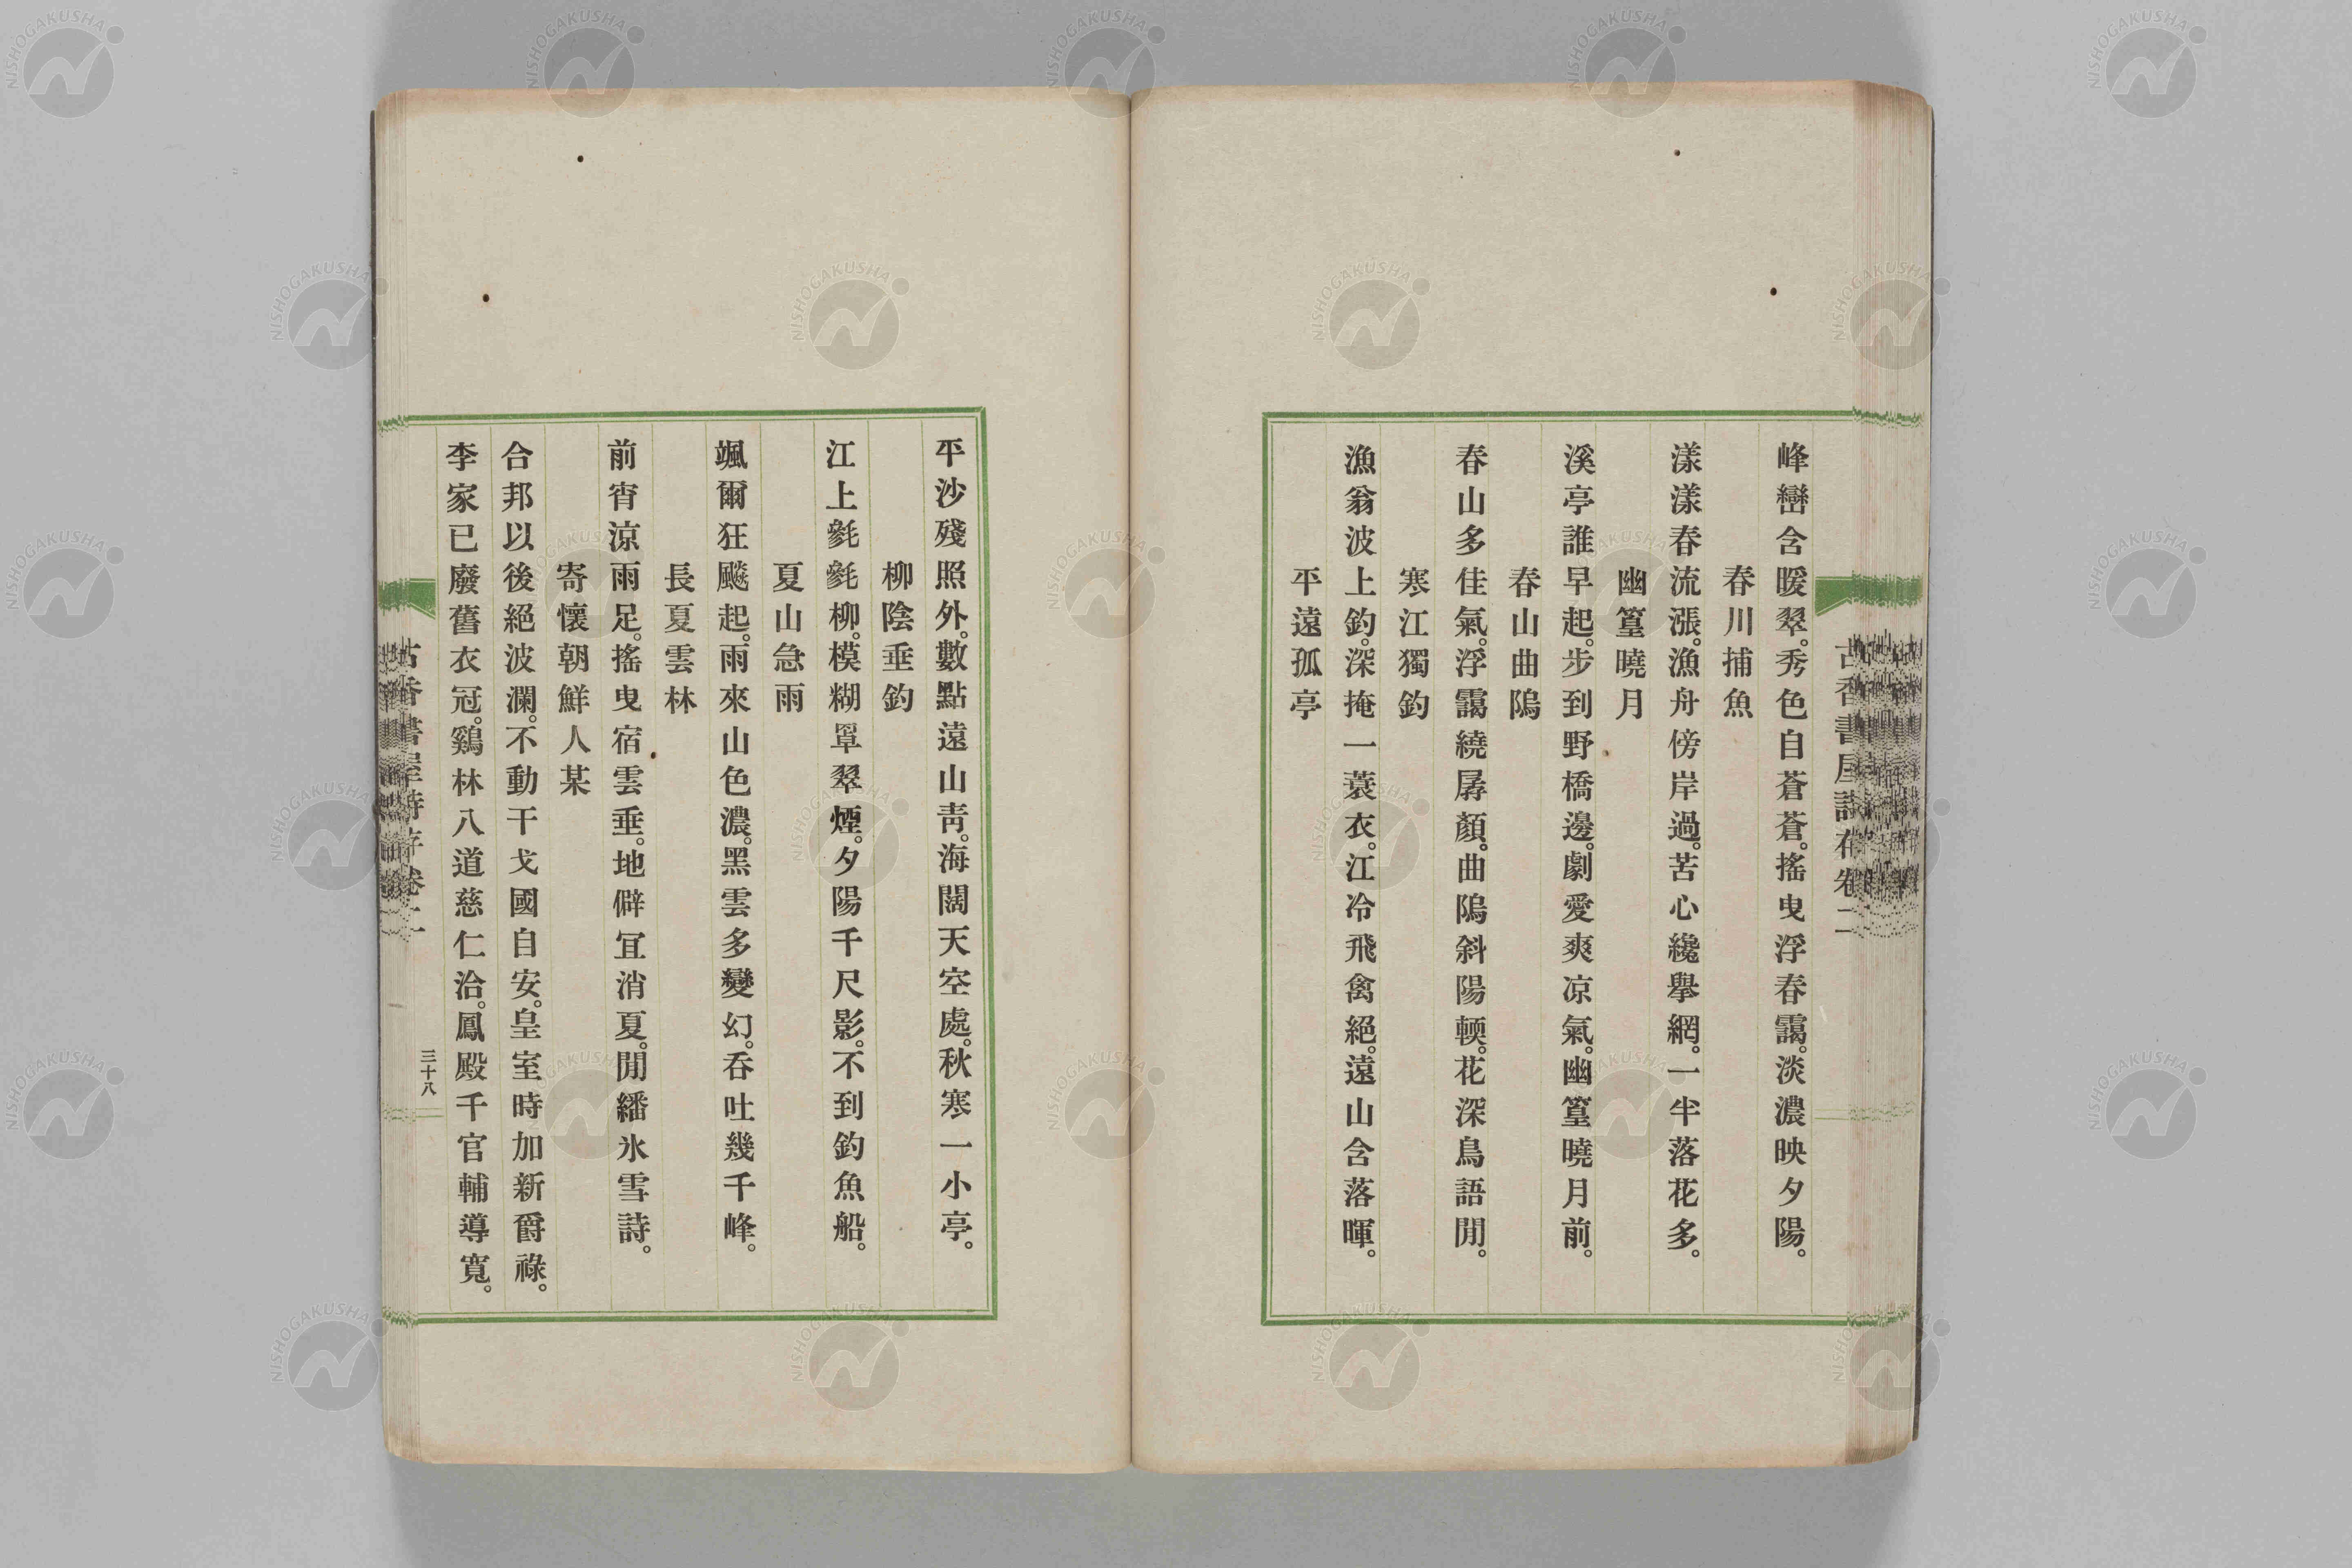 古香書屋詩存卷二
峰巒含暖翠。秀色自蒼蒼。搖曳浮春靄。淡濃映夕陽。
春川捕魚
漾漾春流漲。漁舟傍岸過。苦心纔擧網。一半落花多。
幽篁曉月
溪亭誰早起。步到野橋邊。劇愛爽凉氣。幽篁曉月前。
春山曲隖
春山多佳氣。浮靄繞孱顏。曲隖斜陽輭。花深鳥語閒。
寒江獨釣
漁翁波上釣。深掩一蓑衣。江冷飛禽絕。遠山含落暉。
平遠孤亭
平沙殘照外。數點遠山靑。海闊天空處。秋寒一小亭。
柳陰垂釣
江上毿毿柳。模糊罩翠煙。夕陽千尺影。不到釣魚船。
夏山急雨
颯爾狂颷起。雨來山色濃。黑雲多變幻。吞吐幾千峰。
長夏雲林
前宵涼雨足。搖曳宿雲垂。地僻宜消夏。閒繙氷雪詩。
寄懷朝鮮人某
合邦以後絕波瀾。不動干戈國自安。皇室時加新爵祿。
李家已廢舊衣冠。鷄林八道慈仁洽。鳳殿千官輔導寬。
古香書屋詩存卷二
三十八
NISHOGAKUSHA